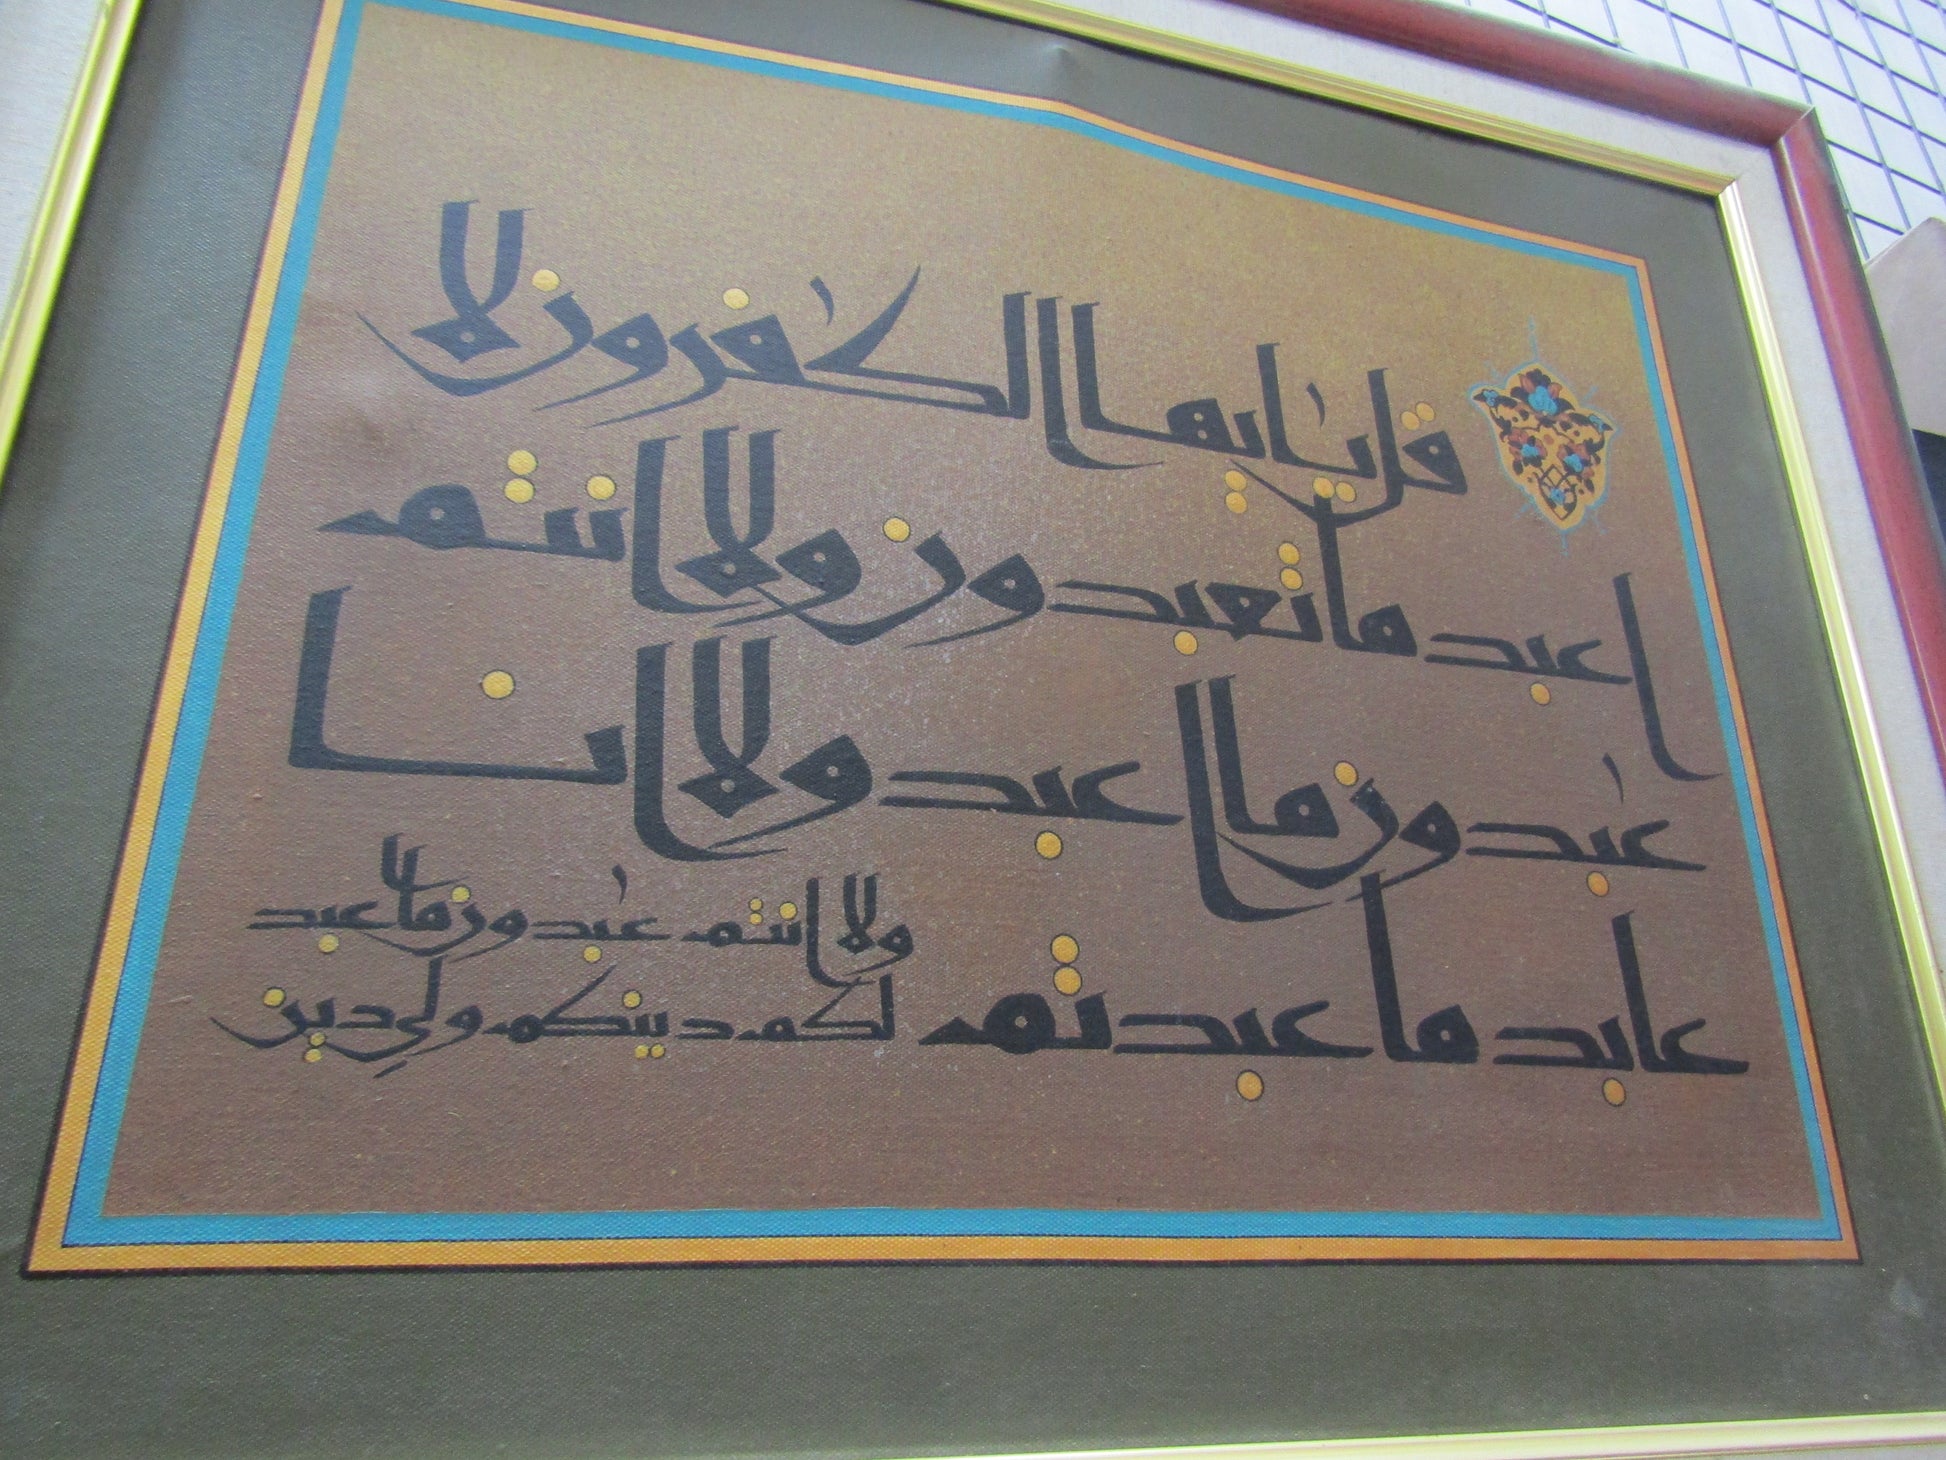 قل يٰايها الكٰفرون لا
اعبد ما تعبدون ولا انتم
عٰبدون ما اعبد ولا انا
عابد ما عبدتم
ولا انتم عٰبدون ما اعبد
لكم دينكم ولي دين